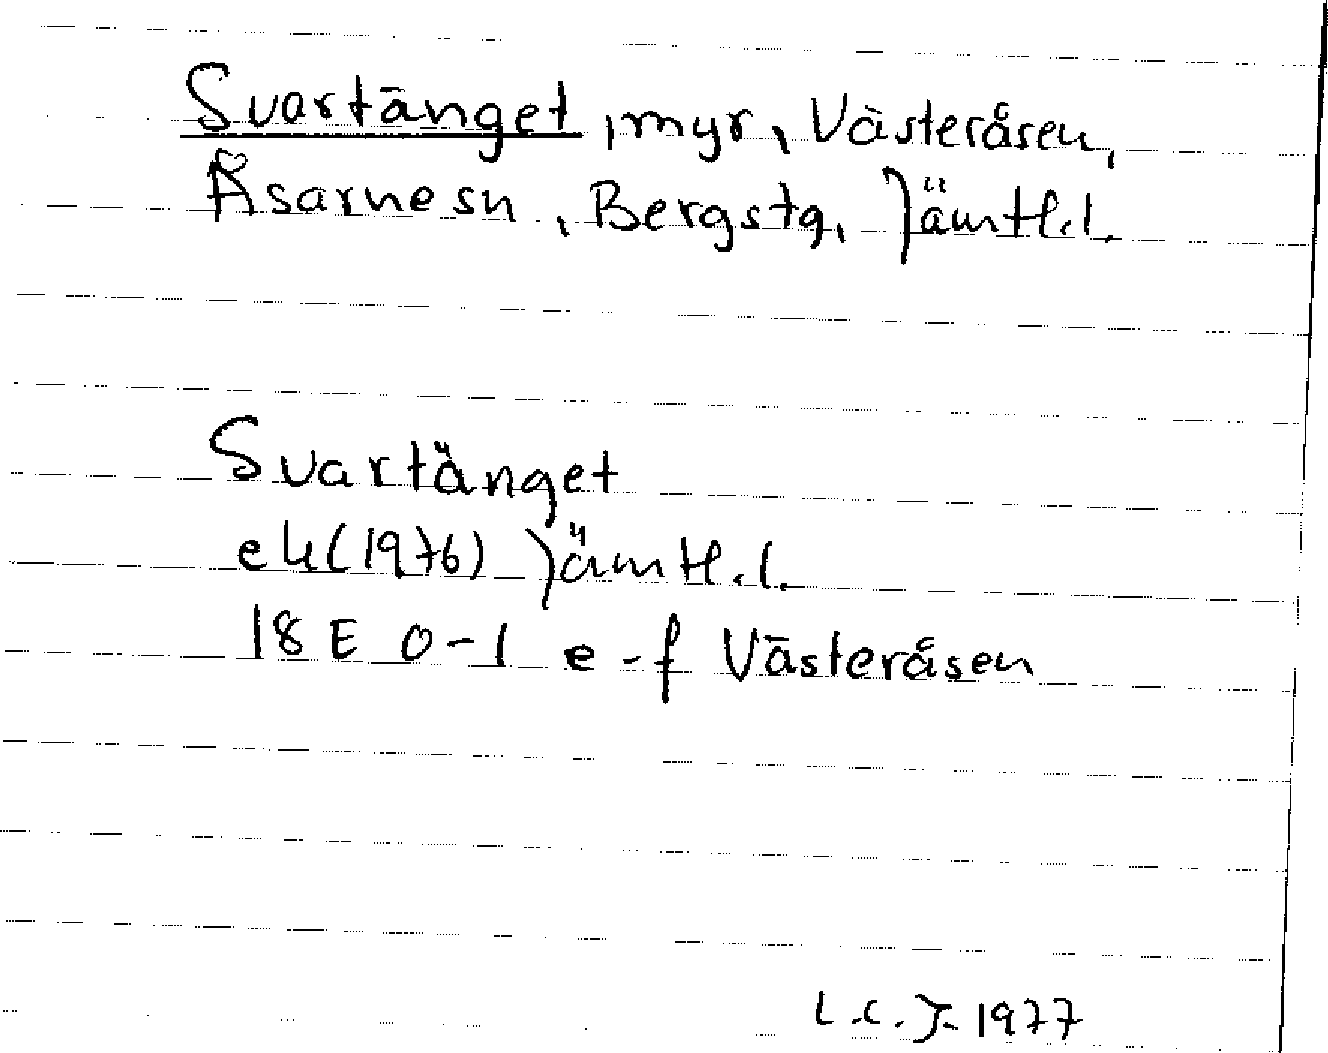 Svartänget, myr, Västeråsen,
Åsarne sn, Bergs tg, Jämtl. l.
Svartänget
ek (1976) Jämtl. l.
18 E 0-1 e-f Västeråsen
L.C.J. 1977